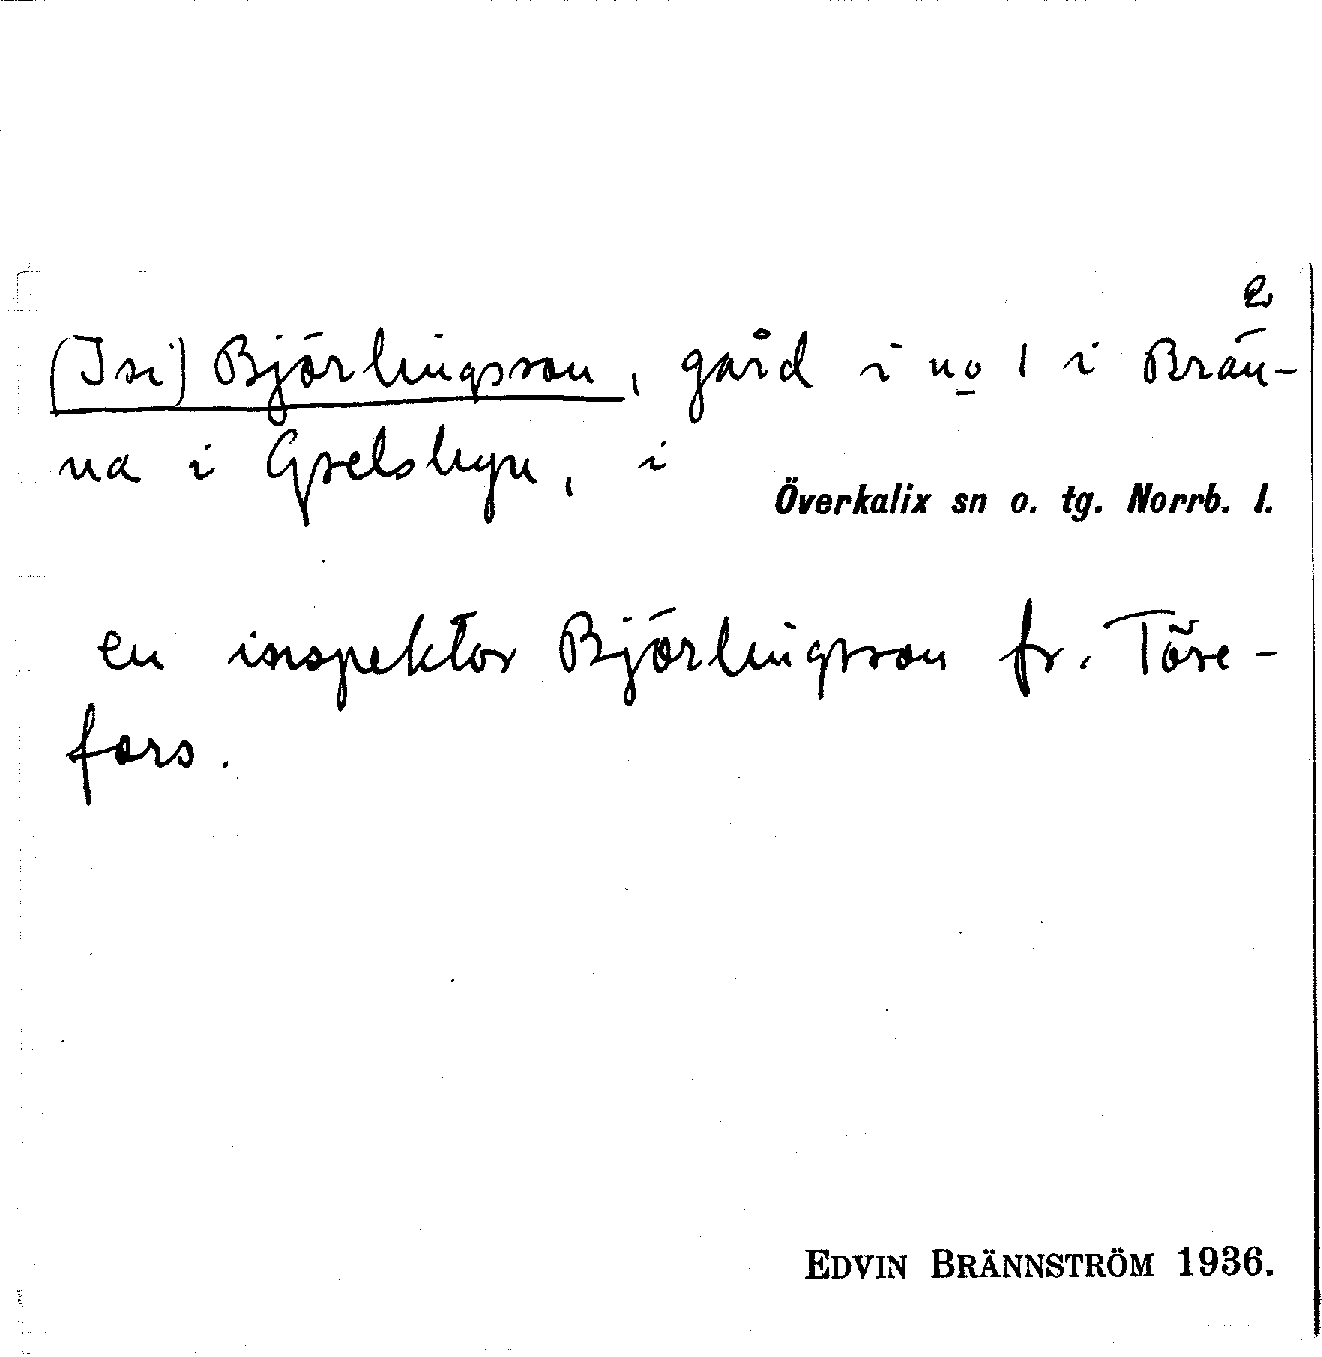 2
(Isi) Björlingsson, gård i no 1 i Brän-
na i Grelsbyn, i
Överkalix sn o. tg. Norrb. l.
en inspektor Björlingsson fr. Töre-
fors.
EDVIN BRÄNNSTRÖM 1936.